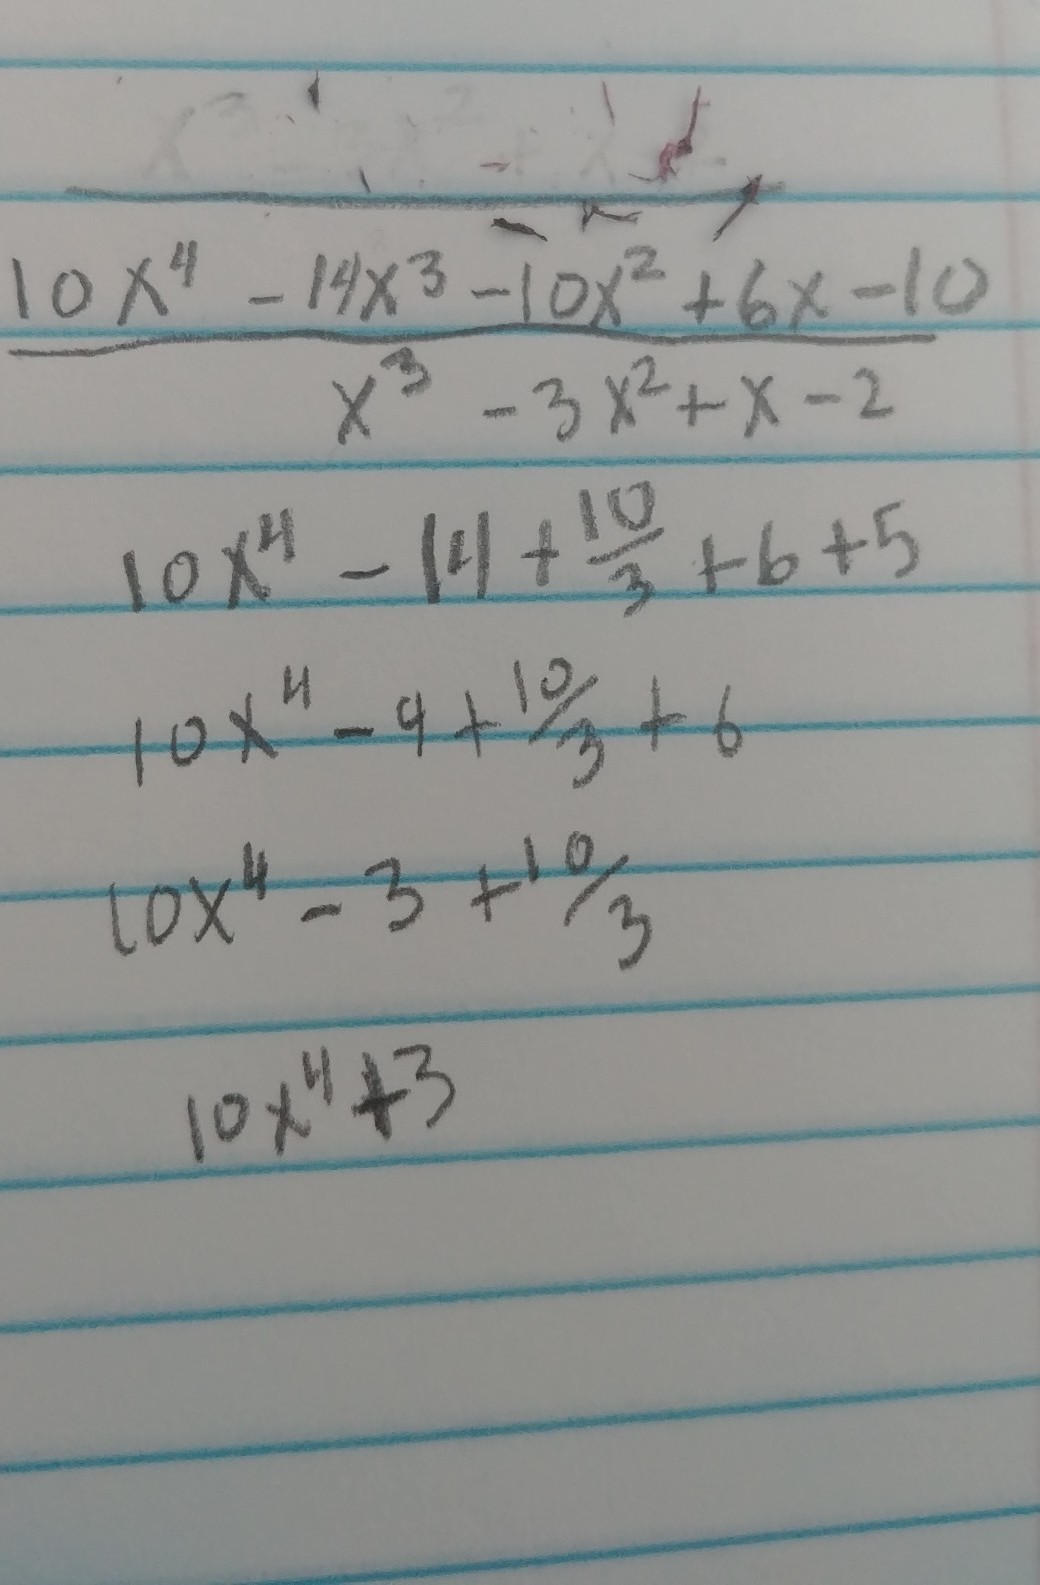 10x⁴ - 14x³ - 10x² + 6x - 10
x³ - 3x² + x - 2
10x⁴ - 14 + 10/3 + 6 + 5
10x⁴ - 9 + 10/3 + 6
10x⁴ - 3 + 10/3
10x⁴ + 3